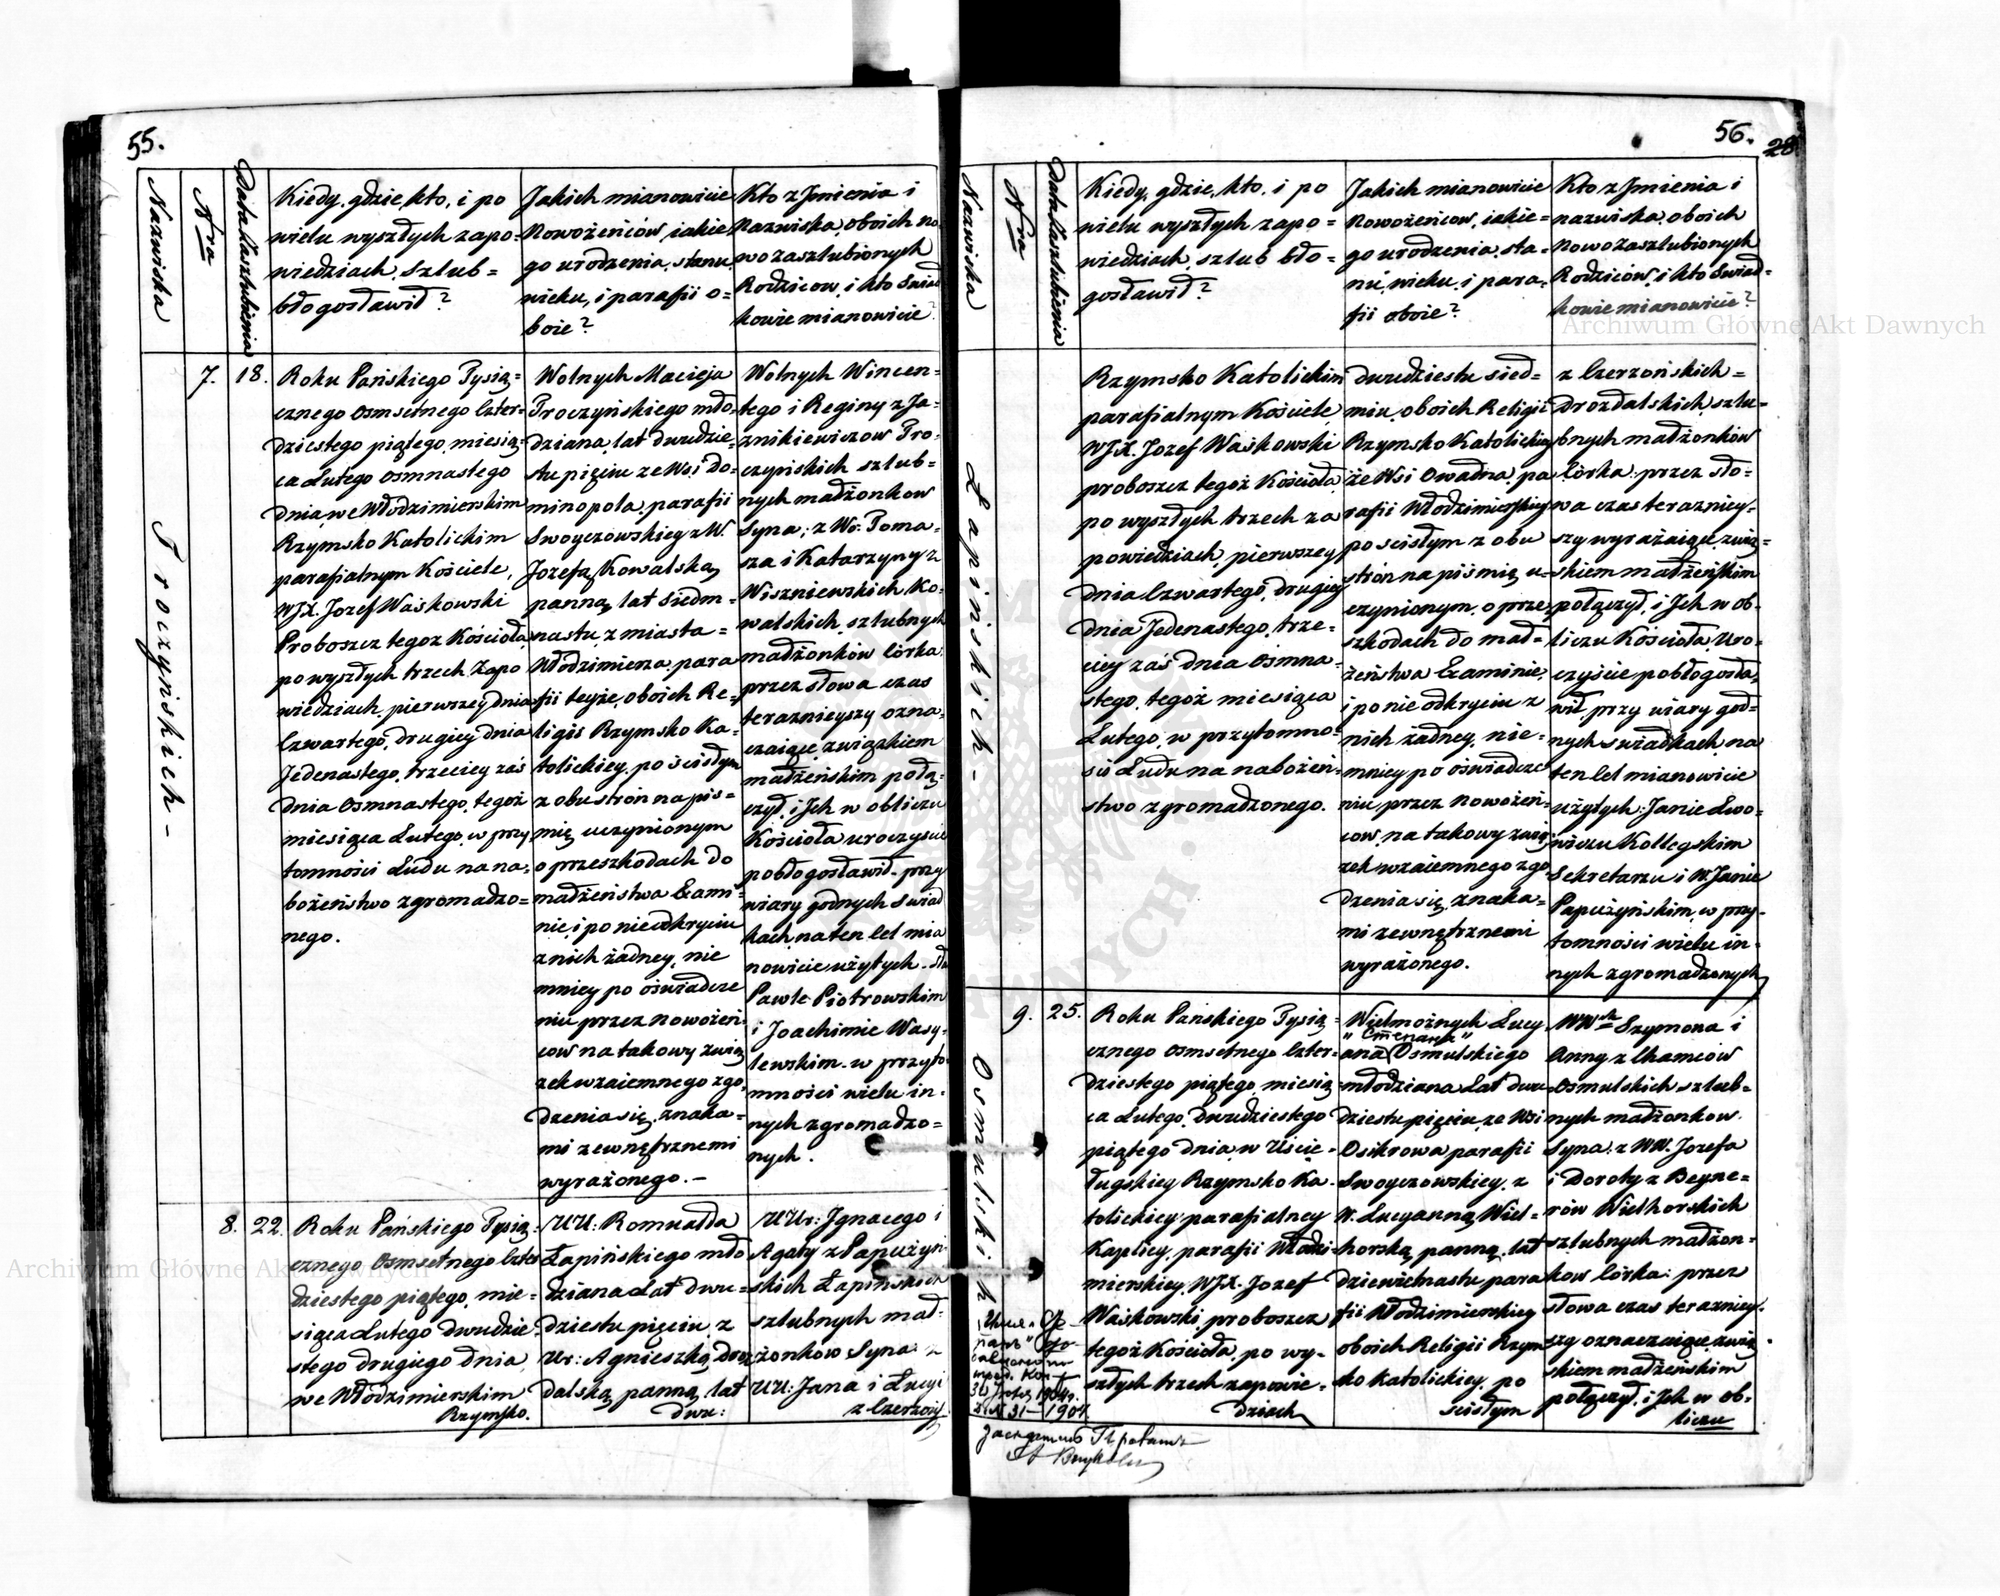 55.
Nazwiska
Nra
Data Zaszlubienia
Kiedy, gdzie, kto, i po
wielu wyszłych zapo=
wiedziach, szlub=
błogosławił?
Jakich mianowicie
Nowożeńców, iakie
go urodzenia, stanu,
wieku, i parafii o=
boie?
Kto z Jmienia i
Nazwiska, oboich no
wozaszlubionych
Rodzicow, i kto świad
kowie mianowicie?
Troczyńskich -
7.
18.
Roku Pańskiego Tysią=
cznego Osmsetnego Czter=
dziestego piątego, miesią=
ca Lutego Osmnastego
dnia we Włodzimierskim
Rzymsko Katolickim
parafialnym Kościele,
WJX. Jozef Waśkowski
Proboszcz tegoż Kościoła,
po wyszłych trzech Zapo
wiedziach, pierwszey dnia
Czwartego, drugiey dnia
Jedenastego, trzeciey zaś
dnia Osmnastego, tegoż
miesiąca Lutego, w przy
tomności Ludu na na=
bożeństwo zgromadzo=
nego.
Wolnych Macieja
Troczyńskiego mło=
dziana, lat dwudzie=
stu pięciu ze Wsi do=
minopola, parafii
Swoyczowskiey z W.
Jozefą Kowalską
panną, lat siedm=
nastu, z miasta=
Włodzimierza, para
fii teyże, oboich Re=
ligii Rzymsko Ka=
tolickiey, po ścisłym
z obu strón na piś=
mię uczynionym
o przeszkodach do
madżeństwa Exami=
nie, i po nieodkryciu
z nich żadney, nie
mniey po oświadcze
niu przez Nowożeń=
cow na takowy zwią
zek wzaiemnego zgo,
dzenia się, znaka=
mi zewnętrznemi
wyrażonego. -
Wolnych Wincen=
tego i Reginy z Ja=
znikiewiczow Tro=
czyńskich szlub=
nych madżonkow
Syna; z Wr: Toma=
sza i Katarzyny z
Wiszniewskich Ko=
walskich, szlubnych
madżonków Córka,
przez słowa czas
teraznieyszy ozna=
czaiące, związkiem
madżeńskim połą=
czył, i Jch w obliczu
Kościoła uroczyscie
pobłogosławił, przy
wiary godnych świad
kach, na ten cel mia
nowicie użytych.
Pawle Piotrowskim
i Joachimie Wasy=
lewskim, w przyto
mności wielu in=
nych zgromadzo=
nych.
8.
22.
Roku Pańskiego Tysią=
cznego Osmsetnego Czter
dziestego piątego, mie=
siąca Lutego dwudzie
stego drugiego dnia,
we Włodzimierskim
Rzymsko.
UU: Romualda
Łapińskiego mło
dziana Lat dwu=
dziestu pięciu, z
Ur: Agnieszką Droz
dalską panną, lat
dwu:
UUr: Jgnacego i
Agaty z Papużyń
skich Łapińskich
szlubnych mał=
żonkow Syna: z
UU: Jana i Łucyi
z Czerzoń
56.
28
Nazwiska
Nra
Data Zaszlubienia
Kiedy, gdzie, kto, i po
wielu wyszłych zapo=
wiedziach, szlub bło=
gosławił?
Jakich mianowicie
Nowożeńcow, iakie=
go urodzenia, sta=
nu, wieku, i para=
fii oboie?
Kto z Jmienia i
nazwiska, oboich
Nowozaszlubionych
Rodziców, i kto Świad=
kowie mianowicie?
Łapińskich -
Rzymsko Katolickim
parafialnym Kościele,
WJX. Jozef Waśkowski
proboszcz tegoż Kościoła,
po wyszłych trzech za
powiedziach, pierwszey
dnia Czwartego, drugiey
dnia Jedenastego, trze=
ciey zaś dnia Osmna=
stego, tegoż miesiąca
Lutego, w przytomno=
ści Ludu na nabożeń=
stwo zgromadzonego.
dwudziestu sied=
miu, oboich Religii
Rzymsko Katolickiey
ze Wsi Owadna, pa
rafii Włodzimierskiey
po ścisłym z obu
strón na piśmię u=
czynionym, o prze
szkodach do mad=
żeństwa Examinie,
i po nie odkryciu z
nich żadney, nie=
mniey po oświadcze
niu, przez Nowożeń=
cow, na takowy zwią,
zek wzaiemnego zgo
dzenia się, znaka=
mi zewnętrznemi
wyrażonego.
z Czerzońskich=
Drozdalskich, szlu=
bnych madżonków
Córka: przez sło=
wa czas terazniey=
szy wyrażaiące, zwią=
zkiem madżeńskim
połączył, i Jch w ob=
liczu Kościoła uro=
czyście pobłogosła,
wił, przy wiary god=
nych świadkach, na
ten Cel mianowicie
użytych: Janie Łwo=
wiczu Kollegskim
Sekretarzu i W. Janie
Papużyńskim, w przy=
tomności wielu in=
nych zgromadzonych
Osmulskich
9.
25.
Roku Pańskiego Tysią=
cznego Osmsetnego Czter=
dziestego piątego, miesią=
ca Lutego, dwudziestego
piątego dnia, w Uście=
ługskiey Rzymsko Ka=
tolickiey parafialney
Kaplicy, parafii Włodzi=
mierskiey, WJX. Jozef
Waśkowski, proboszcz
tegoż Kościoła, po wy=
szłych trzech zapowie=
dziach
Wielmożnych Łucy
"Степана"
ana Osmulskiego
młodziana Lat dwu
dziestu pięciu, ze Wsi
Osikrowa parafii
Swoyczowskiey, z
W. Łucyanną Wiel=
horską, panną, lat
dziewietnastu para
fii Włodzimierskiey
oboich Religii Rzym
sko Katolickiey, po
ścisłym
WWch Szymona i
Anny z Chamców
Osmulskich szlub=
nych madżonkow.
Syna: z WW. Jozefa
i Doroty z Beyze=
rów Wielhorskich
szlubnych madżon=
kow Córka: przez
słowa czas terazniey=
szy oznaczaiące, zwią
zkiem madżeńskim
połączył, i Jch w ob=
liczu
1904.
Archiwum Główne Akt Dawnych
Archiwum Główne Akt Dawnych